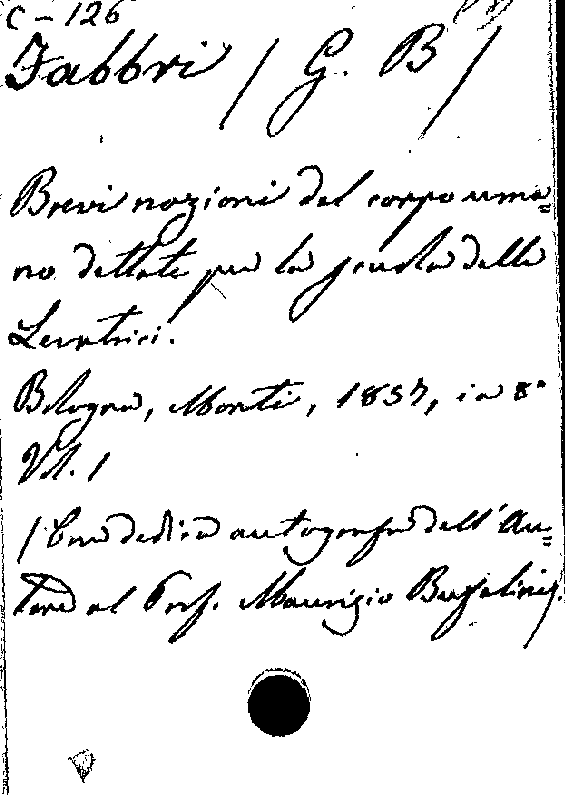 C - 126
Fabbri / G. B /
Brevi nozioni del corpo uma=
no dettate per la scuola delle
Levatrici.
Bologna, Monti, 1857, in 8°
Vol. 1
(Con dedica autografa dell'Au=
tore al Prof. Maurizio Bufalini).